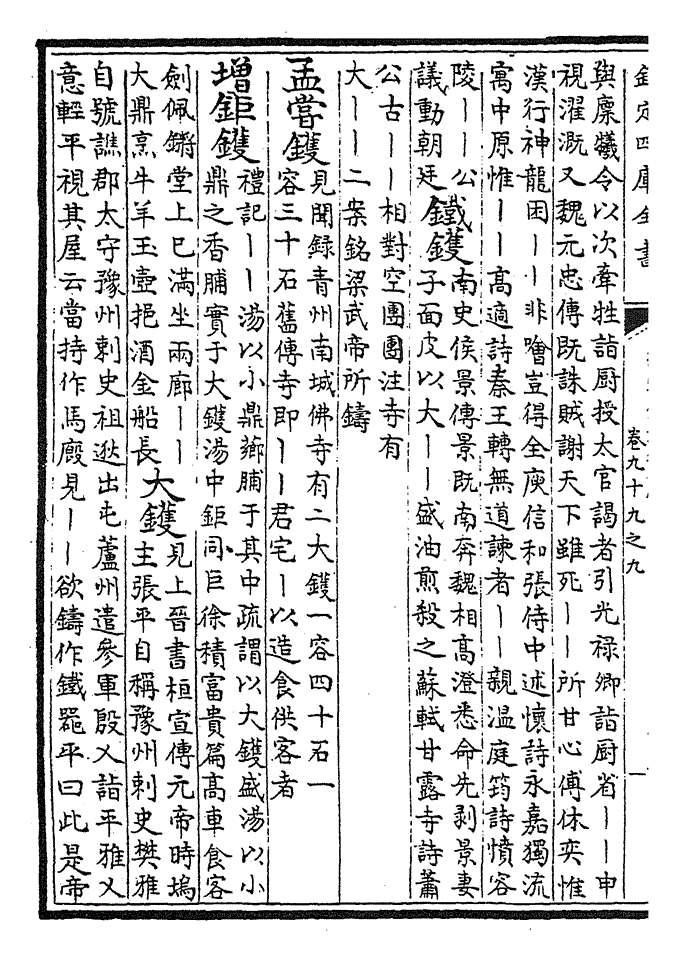 欽定四庫全書
卷九十九之九
一
與廩犧令以次牽牲詣厨授太官謁者引光禄卿詣厨省丨丨申
視濯溉又魏元忠傳既誅賊謝天下雖死丨丨所甘心傅休奕惟
漢行神龍困丨丨非噲豈得全庾信和張侍中述懷詩永嘉獨流
寓中原惟丨丨高適詩秦王轉無道諫者丨丨親温庭筠詩憤容
陵丨丨公
議動朝廷
鐵鑊
南史侯景傳景既南奔魏相高澄悉命先剥景妻
子面皮以大丨丨盛油煎殺之蘇軾甘露寺詩蕭
公古丨丨相對空團團注寺有
大丨丨二案銘梁武帝所鑄
孟嘗鑊
見聞録青州南城佛寺有二大鑊一容四十石一
容三十石舊傳寺即丨丨君宅丨以造食供客者
增鉅鑊
禮記丨丨湯以小鼎薌脯于其中疏謂以大鑊盛湯以小
鼎之香脯實于大鑊湯中鉅同巨徐積富貴篇高車食客
劍佩鏘堂上巳滿坐兩廊丨丨
大鼎烹牛羊玉壺挹酒金船長
大鑊
見上晉書桓宣傳元帝時塢
主張平自稱豫州刺史樊雅
自號譙郡太守豫州刺史祖逖出屯蘆州遣參軍殷乂詣平雅乂
意輕平視其屋云當持作馬廄見丨丨欲鑄作鐵噐平曰此是帝